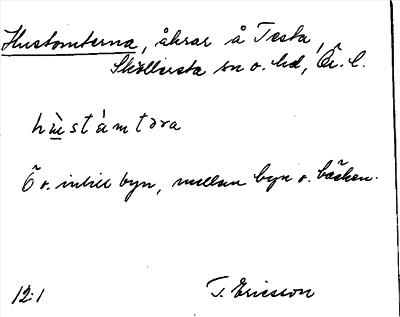 Hustomterna, åkrar å Testa,
Sköllersta sn o. hd, Ör. l.
hùstámtəra
Ö o. intill byn, mellan byn o. bäcken.
12:1 T. Ericsson